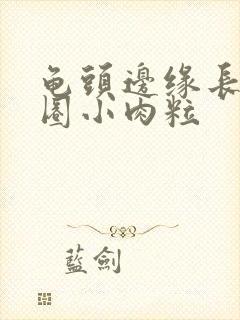 龟頭邊缘長
圈小肉粒
藍劍